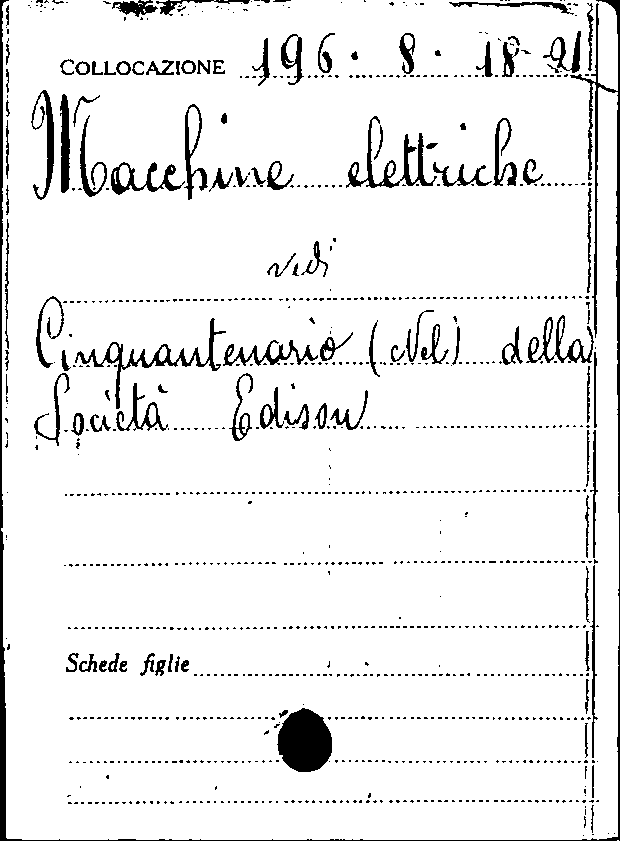 COLLOCAZIONE 196 · 8 · 18-21
Macchine elettriche
vedi
Cinquantenario (Nel) della
Società Edison
Schede figlie